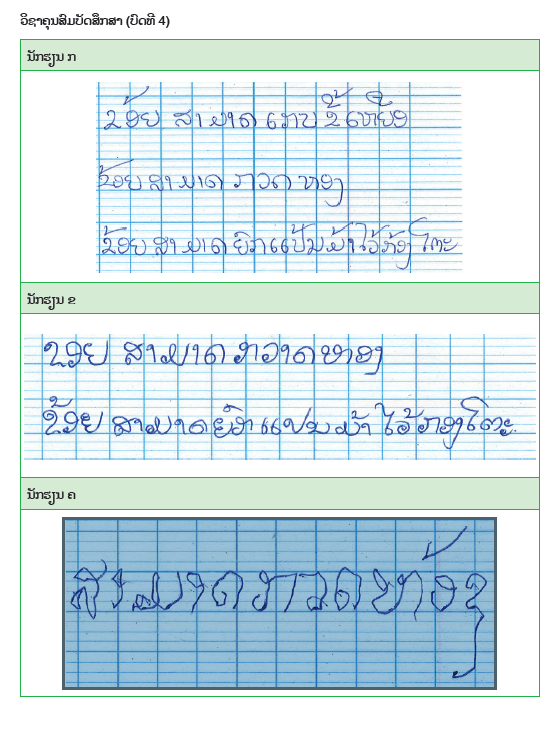 ວິຊາຄຸນສົມບັດສຶກສາ (ບົດທີ 4)
ນັກຮຽນ ກ
ຂ້ອຍ ສາ ມາດ
ຂ້ອຍ ສາ ມາດ ກວດ ຫອງ
ຂ້ອຍ ສາ ມາດ ຍົກ ແປ້ນ ມ້າ ໄວ້ ກ້ອງ ໂຕະ
ນັກຮຽນ ຂ
ຂອຍ ສາມາດ ກວາດຫອງ
ຂ້ອຍ ສາມາດຍົກແປນ ມ້າ ໄວ້ ກອງໂຕະ
ນັກຮຽນ ຄ
ສາມາດກວດຫ້ອງ